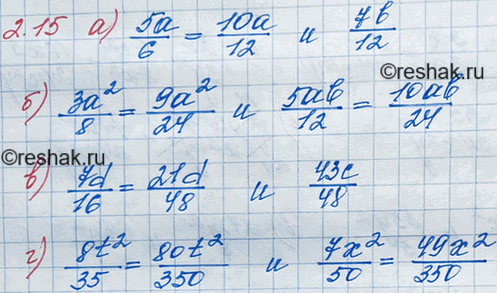 2.15 а) 5a/6 = 10a/12 и 7b/12
©reshak.ru
б) 3a²/8 = 9a²/24 и 5ab/12 = 10ab/24
©reshak.ru
в) 7d/16 = 21d/48 и 43c/48
г) 8t²/35 = 80t²/350 и 7x²/50 = 49x²/350